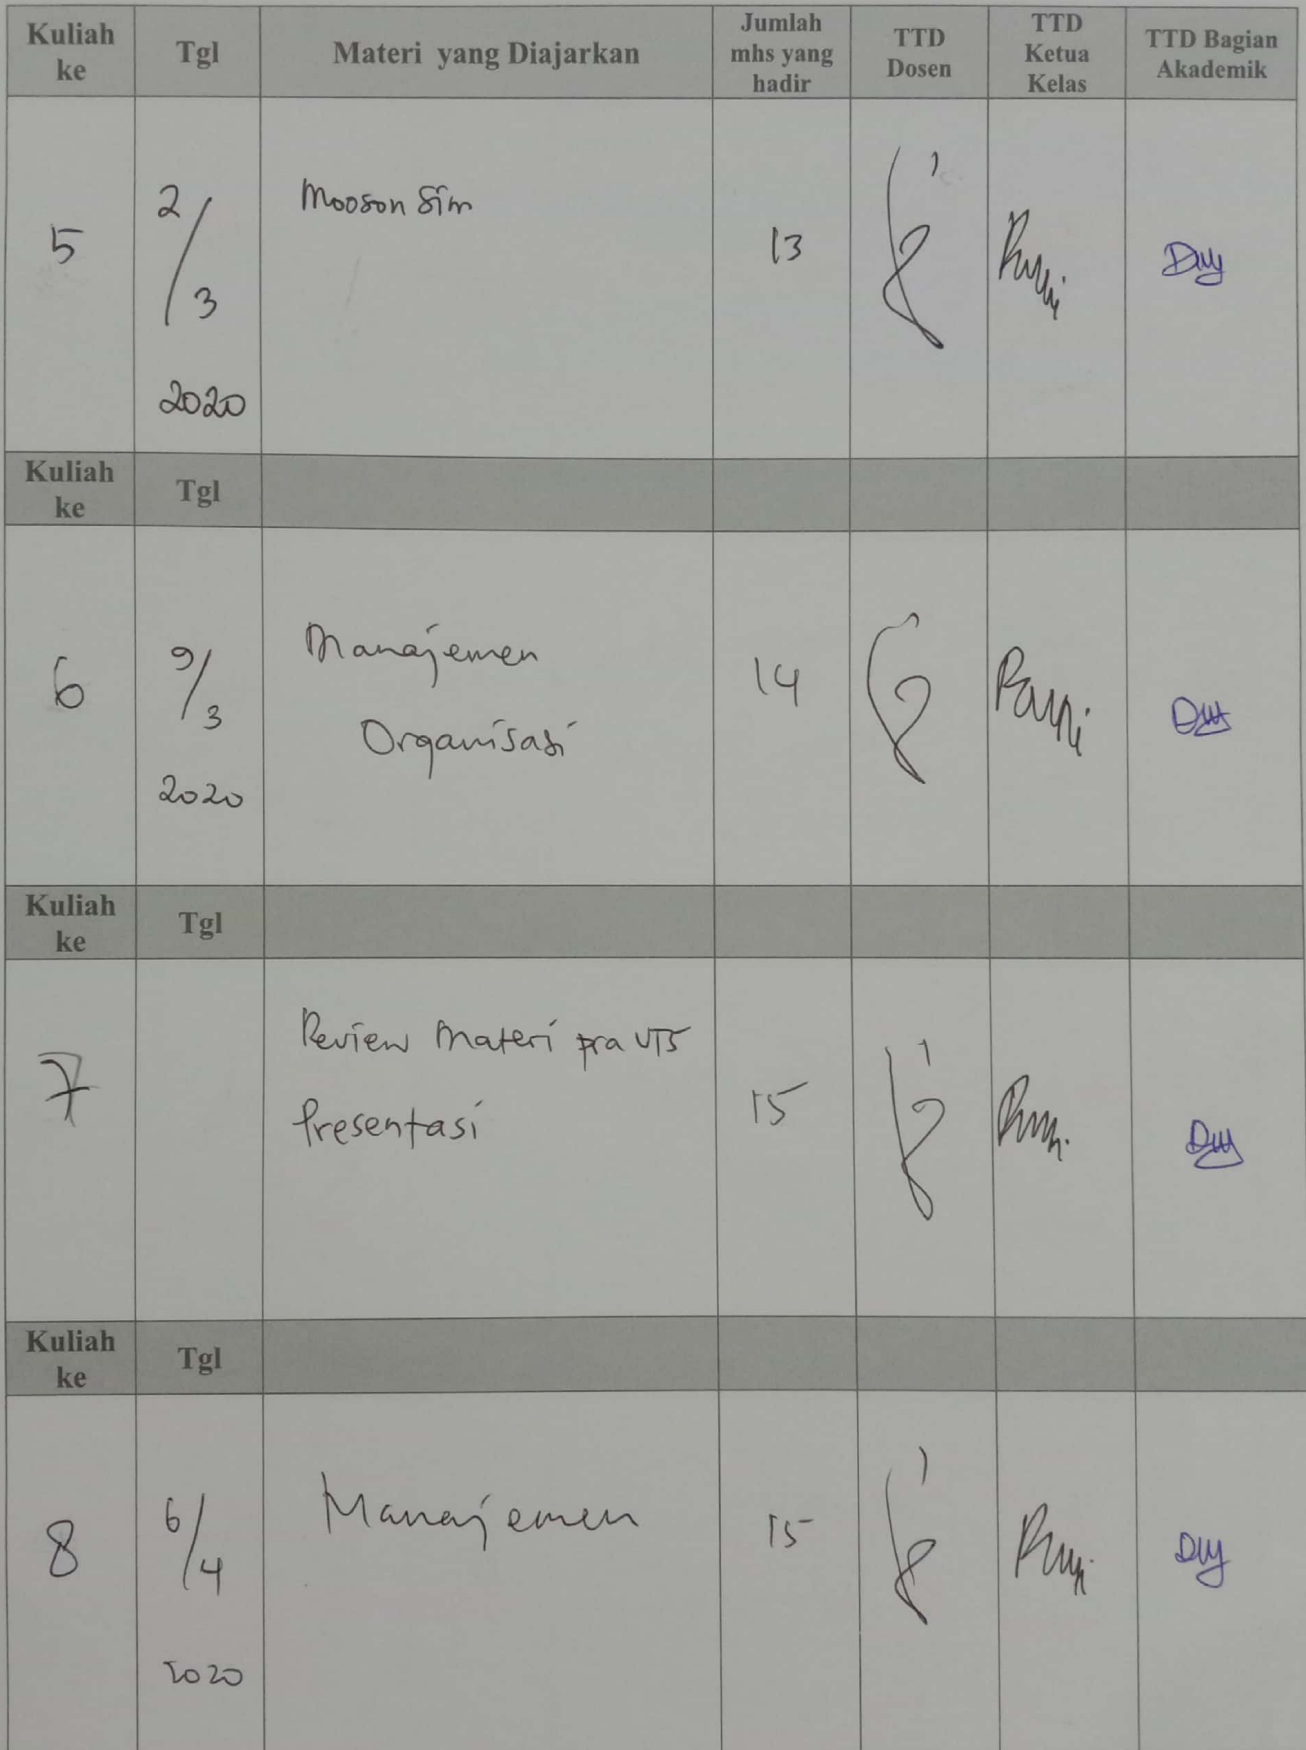 Kuliah ke Tgl Materi yang Diajarkan Jumlah mhs yang hadir TTD Dosen TTD Ketua Kelas TTD Bagian Akademik
5
2/3
2020
Mooson Sim
13
Kuliah ke Tgl
6
9/3
2020
Manajemen
Organisasi
14
Kuliah ke Tgl
7
Review Materi pra UTS
Presentasi
15
Kuliah ke Tgl
8
6/4
2020
Manajemen
15